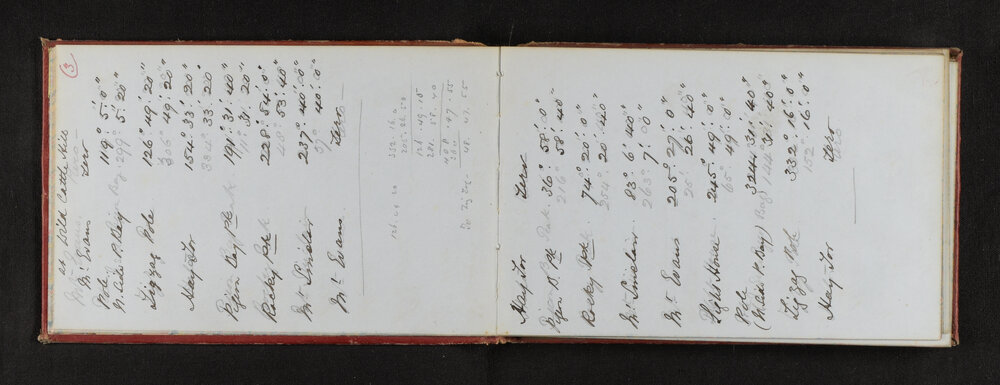 3
at Wild Cattle Hill
Mt Evans Zero
Pole 119° 5' 0"
N. side P. Bay 299° 5' 20"
Zigzag Pole 126° 49' 20"
306° 49' 20"
Hay-Tor 154° 33' 20"
334° 33' 20"
Pigeon Bay Pk 191° 31' 40"
11° 31' 20"
Rocky Peak 228° 54' 0"
48° 53' 40"
Mt Sinclair 237° 40' 0"
57° 40' 0"
Mt Evans Zero
352. 16. 0
126. 49. 15
47. 55
Hay-Tor Zero
Pigeon B. Pk 36° 58' 0"
216° 58' 40"
Rocky Pk 74° 20' 40"
254° 20' 40"
Mt Sinclair 83° 6' 40"
263° 7' 00"
Mt Evans 205° 27' 0"
25° 26' 40"
Light House 245° 49' 0"
65° 49' 0"
Pole 324° 31' 40"
(N. side P. Bay) 144° 31' 40"
Zigzag Pole 332° 16' 0"
152° 16' 0"
Hay-Tor Zero